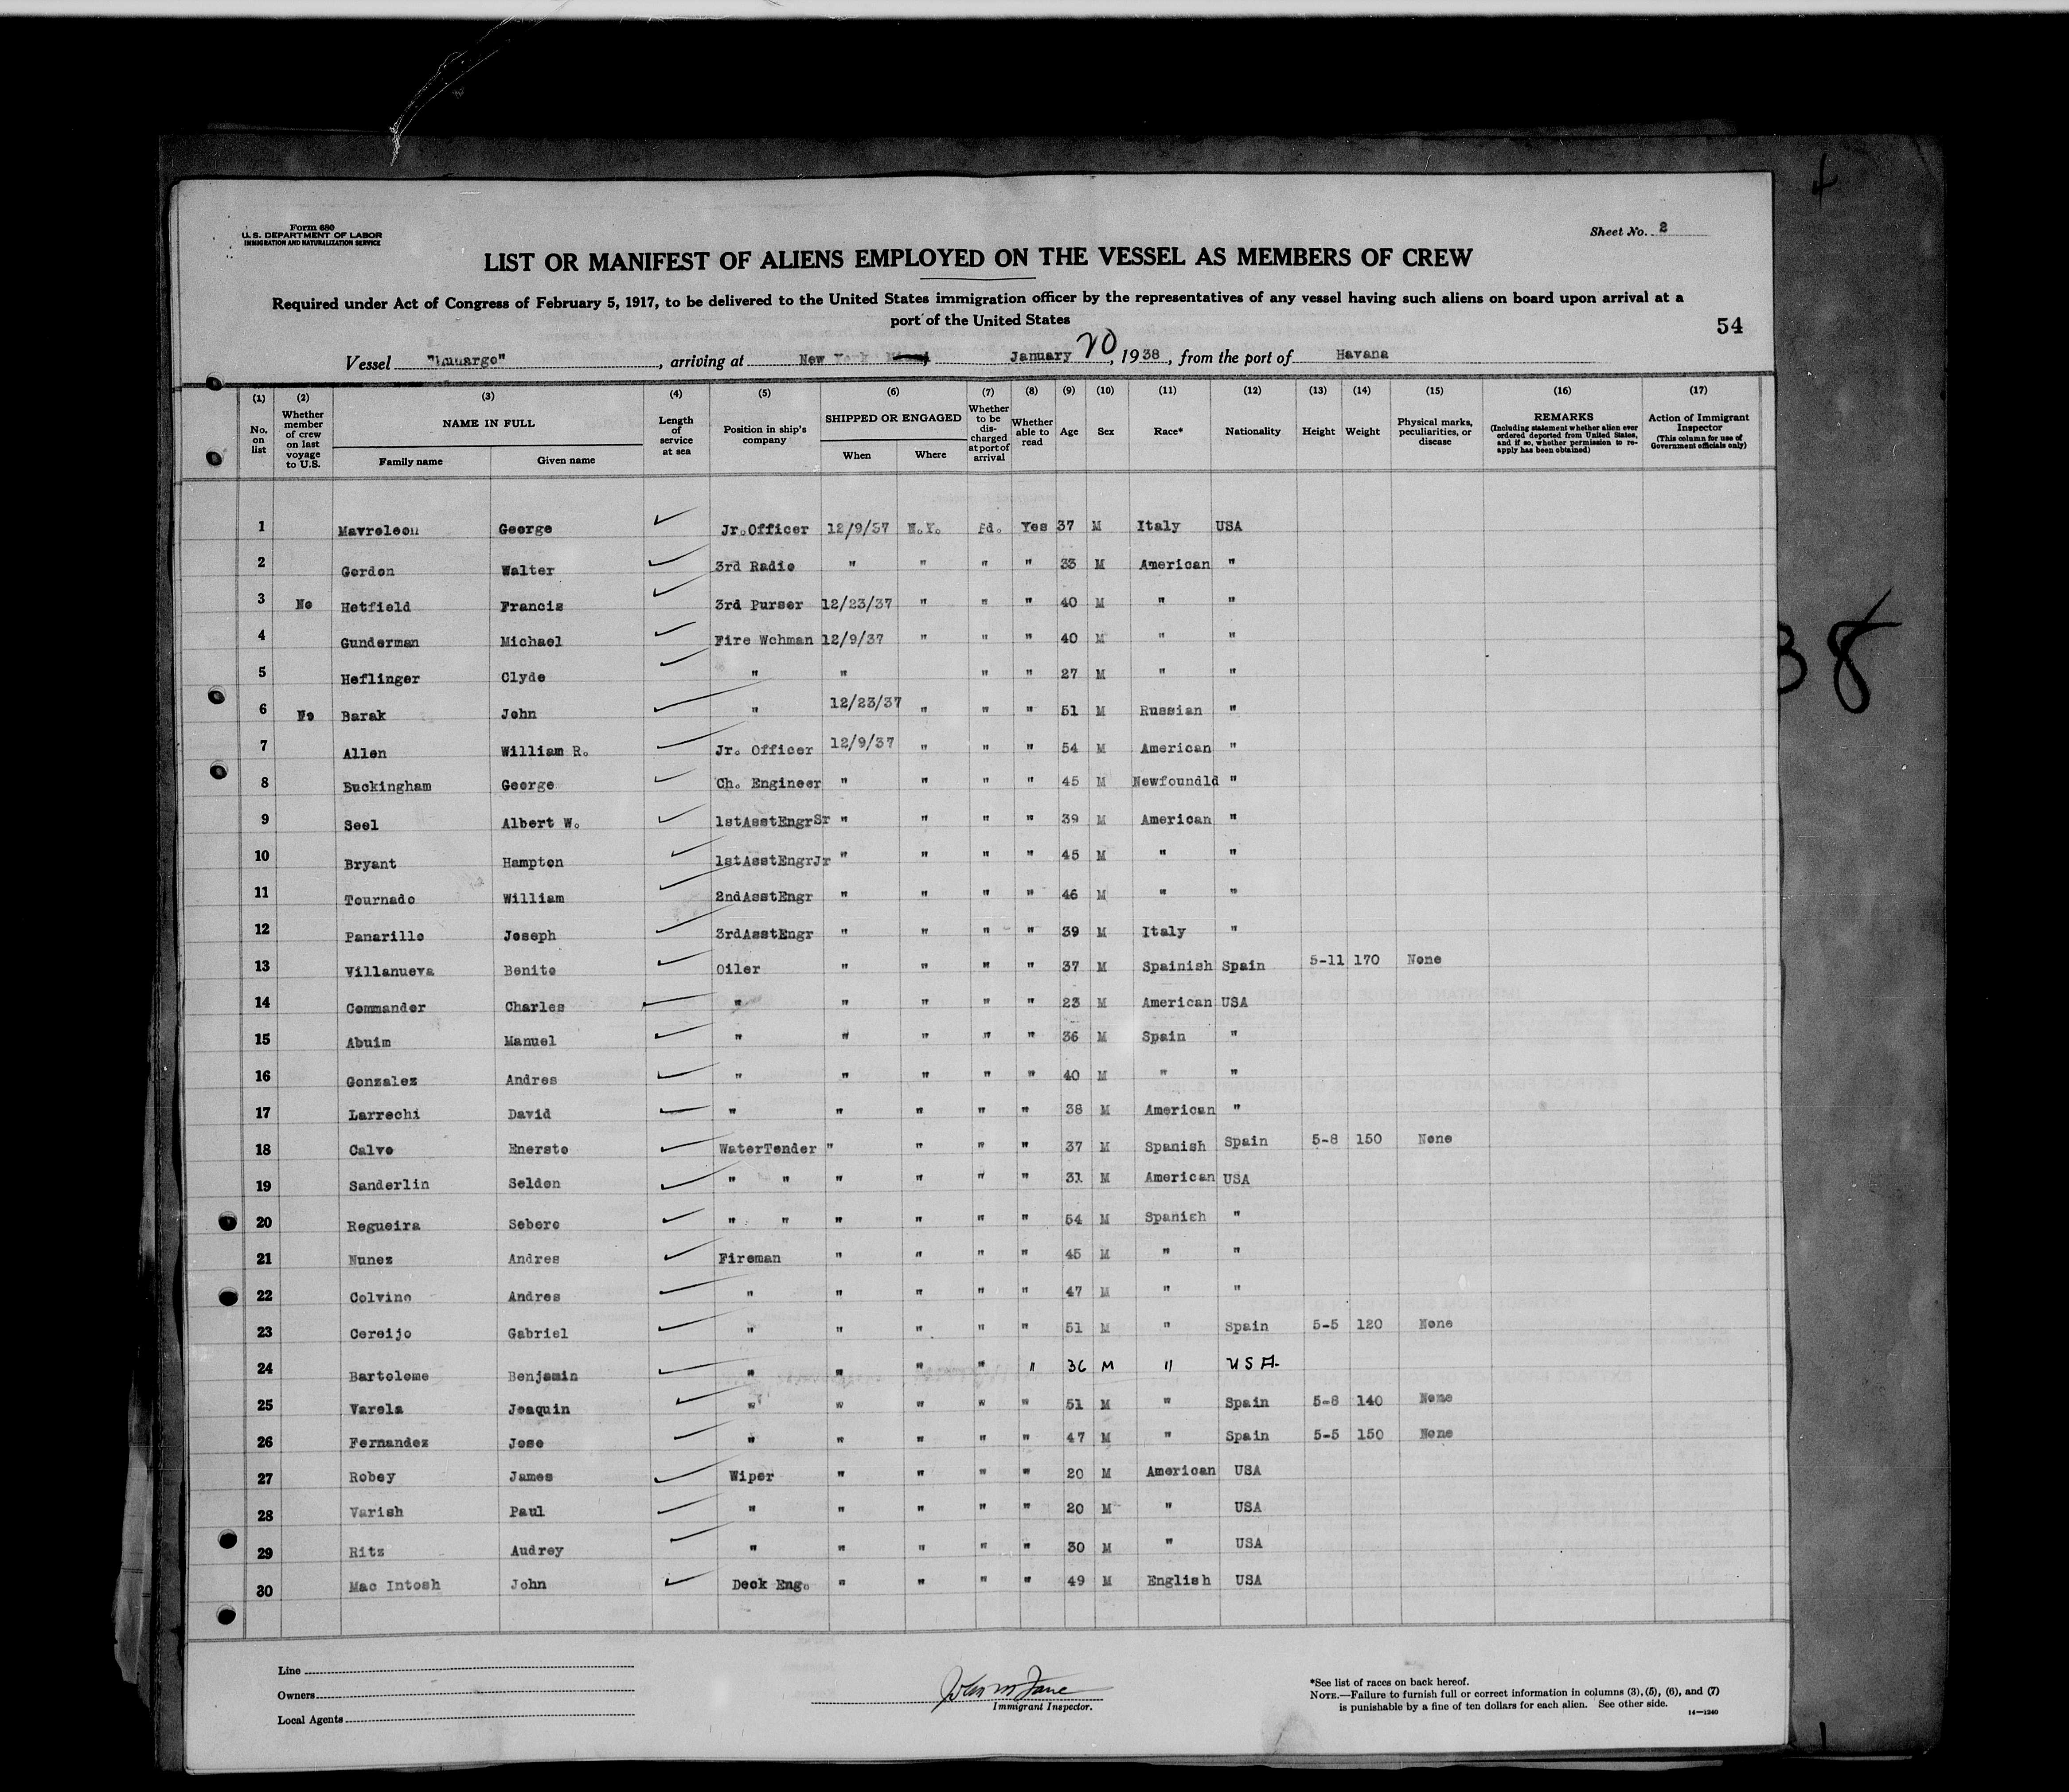 Form 680
U. S. DEPARTMENT OF LABOR
IMMIGRATION AND NATURALIZATION SERVICE
Sheet No. 2
LIST OR MANIFEST OF ALIENS EMPLOYED ON THE VESSEL AS MEMBERS OF CREW
Required under Act of Congress of February 5, 1917, to be delivered to the United States immigration officer by the representatives of any vessel having such aliens on board upon arrival at a
port of the United States
54
Vessel "Munargo", arriving at New York January 20, 1938, from the port of Havana
(1) (2) (3) (4) (5) (6) (7) (8) (9) (10) (11) (12) (13) (14) (15) (16) (17)
No. on list
Whether member of crew on last voyage to U.S.
NAME IN FULL
Family name Given name
Length of service at sea
Position in ship's company
SHIPPED OR ENGAGED
When Where
Whether to be discharged at port of arrival
Whether able to read
Age
Sex
Race*
Nationality
Height
Weight
Physical marks, peculiarities, or disease
REMARKS
(Including statement whether alien ever ordered deported from United States, and if so, whether permission to reapply has been obtained)
Action of Immigrant Inspector
(This column for use of Government officials only)
1 Mavroleon George ✓ Jr.Officer 12/9/37 N.Y. Fd. Yes 37 M Italy USA
2 Gordon Walter ✓ 3rd Radio " " " " 33 M American "
3 No Hetfield Francis ✓ 3rd Purser 12/23/37 " " " 40 M " "
4 Gunderman Michael ✓ Fire Wchman 12/9/37 " " " 40 M " "
5 Heflinger Clyde ✓ " " " " 27 M " "
6 No Barak John ✓ " 12/23/37 " " " 51 M Russian "
7 Allen William R. ✓ Jr. Officer 12/9/37 " " " 54 M American "
8 Buckingham George ✓ Ch. Engineer " " " " 45 M Newfoundld "
9 Seel Albert W. ✓ 1stAsstEngrSr " " " " 39 M American "
10 Bryant Hampton ✓ 1stAsstEngrJr " " " " 45 M " "
11 Tournado William ✓ 2ndAsstEngr " " " " 46 M " "
12 Panarillo Joseph ✓ 3rdAsstEngr " " " " 39 M Italy "
13 Villanueva Benito ✓ Oiler " " " " 37 M Spainish Spain 5-11 170 None
14 Commander Charles ✓ " " " " " 23 M American USA
15 Abuim Manuel ✓ " " " " " 36 M Spain "
16 Gonzalez Andres ✓ " " " " " 40 M " "
17 Larrechi David ✓ " " " " " 38 M American "
18 Calvo Enersto ✓ WaterTender " " " " 37 M Spanish Spain 5-8 150 None
19 Sanderlin Seldon ✓ " " " " " " 31 M American USA
20 Regueira Sebero ✓ " " " " " " 54 M Spanish "
21 Nunez Andres ✓ Fireman " " " " 45 M " "
22 Colvino Andres ✓ " " " " " 47 M " "
23 Cereijo Gabriel ✓ " " " " " 51 M " Spain 5-5 120 None
24 Bartolome Benjamin ✓ " " " " " 36 M " USA
25 Varela Joaquin ✓ " " " " " 51 M " Spain 5-8 140 None
26 Fernandez Jose ✓ " " " " " 47 M " Spain 5-5 150 None
27 Robey James ✓ Wiper " " " " 20 M American USA
28 Varish Paul ✓ " " " " " 20 M " USA
29 Ritz Audrey ✓ " " " " " 30 M " USA
30 Mac Intosh John ✓ Deck Eng. " " " " 49 M English USA
Line
Owners
Local Agents
Immigrant Inspector.
*See list of races on back hereof.
NOTE.—Failure to furnish full or correct information in columns (3), (5), (6), and (7)
is punishable by a fine of ten dollars for each alien. See other side.
14—1240